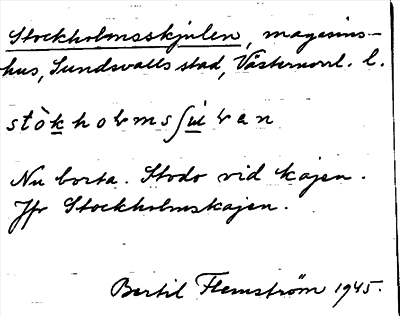 Stockholmsskjulen, magasins-
hus, Sundsvalls stad, Västernorrl. l.
Nu borta. Stodo vid kajen.
Jfr Stockholmskajen.
Bertil Flemström 1945.